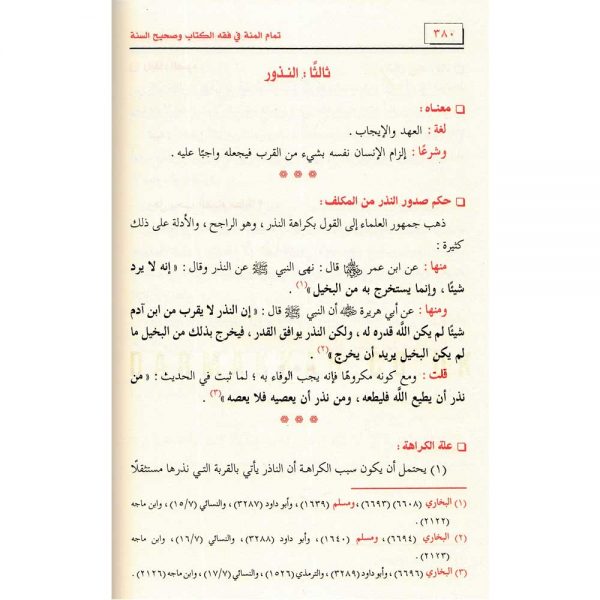 تمام المنة في فقه الكتاب وصحيح السنة
٣٨٠
ثالثًا : النـذور
❑ معنـاه :
لغة : العهد والإيجاب .
وشرعًا : إلزام الإنسان نفسه بشيء من القرب فيجعله واجبًا عليه .
* * *
❑ حكم صدور النذر من المكلف :
ذهب جمهور العلماء إلى القول بكراهة النذر ، وهو الراجح ، والأدلة على ذلك
كثيرة :
منها : عن ابن عمر رضي الله عنهما قال : نهى النبي ﷺ عن النذر وقال : « إنه لا يرد
شيئًا ، وإنما يستخرج به من البخيل »(١) .
ومنها : عن أبي هريرة رضي الله عنه أن النبي ﷺ قال : « إن النذر لا يقرب من ابن آدم
شيئًا لم يكن اللَّه قدره له ، ولكن النذر يوافق القدر ، فيخرج بذلك من البخيل ما
لم يكن البخيل يريد أن يخرج »(٢) .
قلت : ومع كونه مكروهًا فإنه يجب الوفاء به ؛ لما ثبت في الحديث : « من
نذر أن يطيع اللَّه فليطعه ، ومن نذر أن يعصيه فلا يعصه »(٣) .
* * *
❑ علة الكراهة :
(١) يحتمل أن يكون سبب الكراهـة أن الناذر يأتي بالقربة التـي نذرها مستثقلًا
(١) البخاري (٦٦٠٨) (٦٦٩٣) ، ومسلم (١٦٣٩) ، وأبو داود (٣٢٨٧) ، والنسائي (١٥/٧) ، وابن ماجه
(٢١٢٢) .
(٢) البخاري (٦٦٩٤) ، ومسلم (١٦٤٠) ، وأبو داود (٣٢٨٨) ، والنسائي (١٦/٧) ، وابن ماجه
(٢١٢٣) .
(٣) البخاري (٦٦٩٦) ، وأبو داود (٣٢٨٩) ، والترمذي (١٥٢٦) ، والنسائي (١٧/٧) ، وابن ماجه (٢١٢٦) .